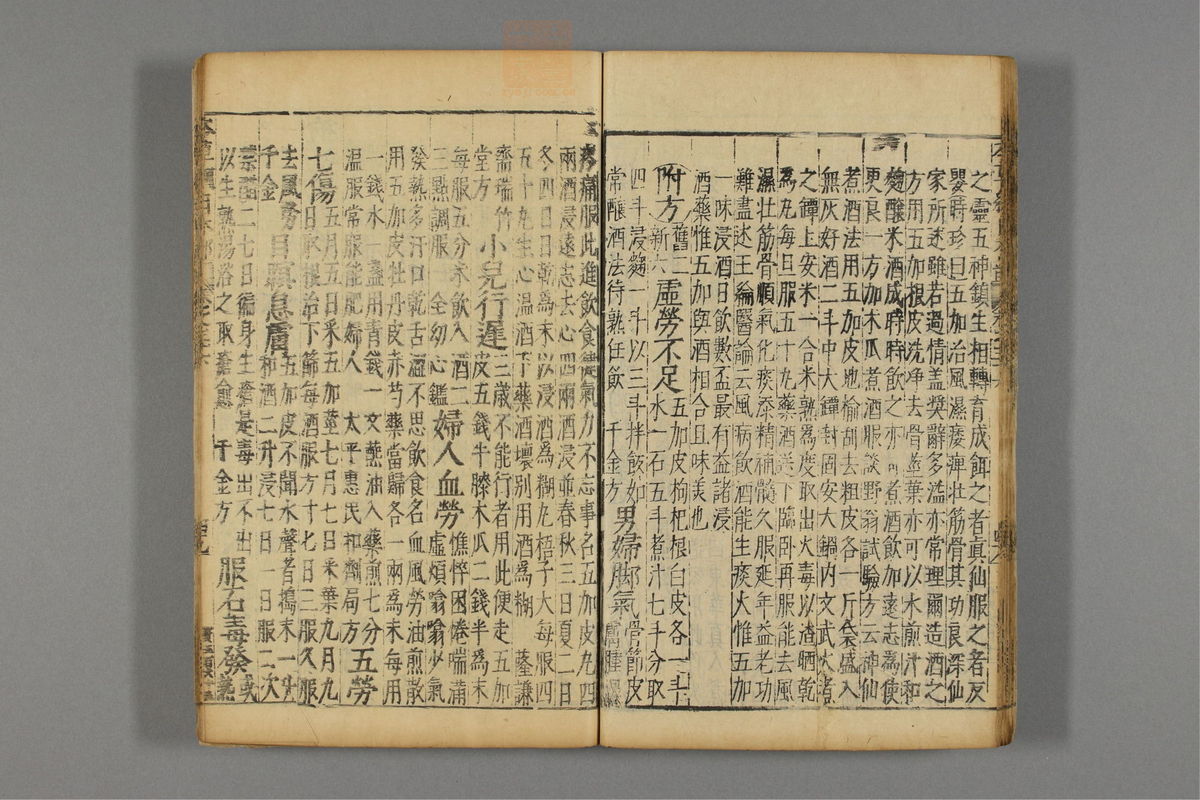 之靈五神鎖生相轉育成餌之者真仙服之者反
嬰時珍曰五加治風濕痿痺壯筋骨其功良深仙
家所述雖若過情蓋奨辭多溢亦常理爾造酒之
方用五加根皮洗净去骨莖葉亦可以水煎汁和
麴釀米酒成時時飲之亦可煮酒飲加遠志為使
更良一方加木瓜煮酒服談野翁試驗方云神仙
煮酒法用五加皮地榆刮去粗皮各一斤袋盛入
無灰好酒二斗中大罈封固安大鍋內文武火煮
之罈上安米一合米熟為度取出火毒以渣晒乾
為丸每旦服五十丸藥酒送下臨卧再服能去風
濕壯筋骨順氣化痰添精補髓久服延年益老功
難盡述王綸醫論云風病飲酒能生痰火惟五加
一味浸酒日飲數盃最有益諸浸
酒藥惟五加與酒相合且味美也
附方舊二新六虛勞不足五加皮枸杞根白皮各一斗
水一石五斗煮汁七斗分取
四斗浸麴一斗以三斗拌飯如
常釀酒法待熟任飲 千金方男婦脚氣骨節皮
膚腫
疼痛服此進飲食健氣力不忘事名五加皮丸四
兩酒浸遠志去心四兩酒浸並春秋三日夏二日
冬四日日乾為末以浸酒為糊丸梧子大每服四
五十丸空心温酒下藥酒壞別用酒為糊 薩謙
齋瑞竹
堂方小兒行遲三歲不能行者用此便走五加
皮五錢牛膝木瓜二錢半為末
每服五分米飲入酒二
三點調服 全幼心鑑婦人血勞憔悴困倦喘滿
虛煩噏噏少氣
發熱多汗口乾舌澀不思飲食名血風勞油煎散
用五加皮牡丹皮赤芍藥當歸各一兩為末每用
一錢水一盞用青錢一文蘸油入藥煎七分
温服常服能肥婦人 太平惠民和劑局方五勞
七傷五月五日采五加莖七月七日采葉九月九
日取根治下篩每酒服方寸七日三服久服
去風勞目瞑息膚五加皮不聞水聲者搗末一升
和酒二升浸七日一日服二次
千金
二七日徧身生瘡是毒出不出
以生熟湯浴之取瘡愈 千金方服石毒發熱或